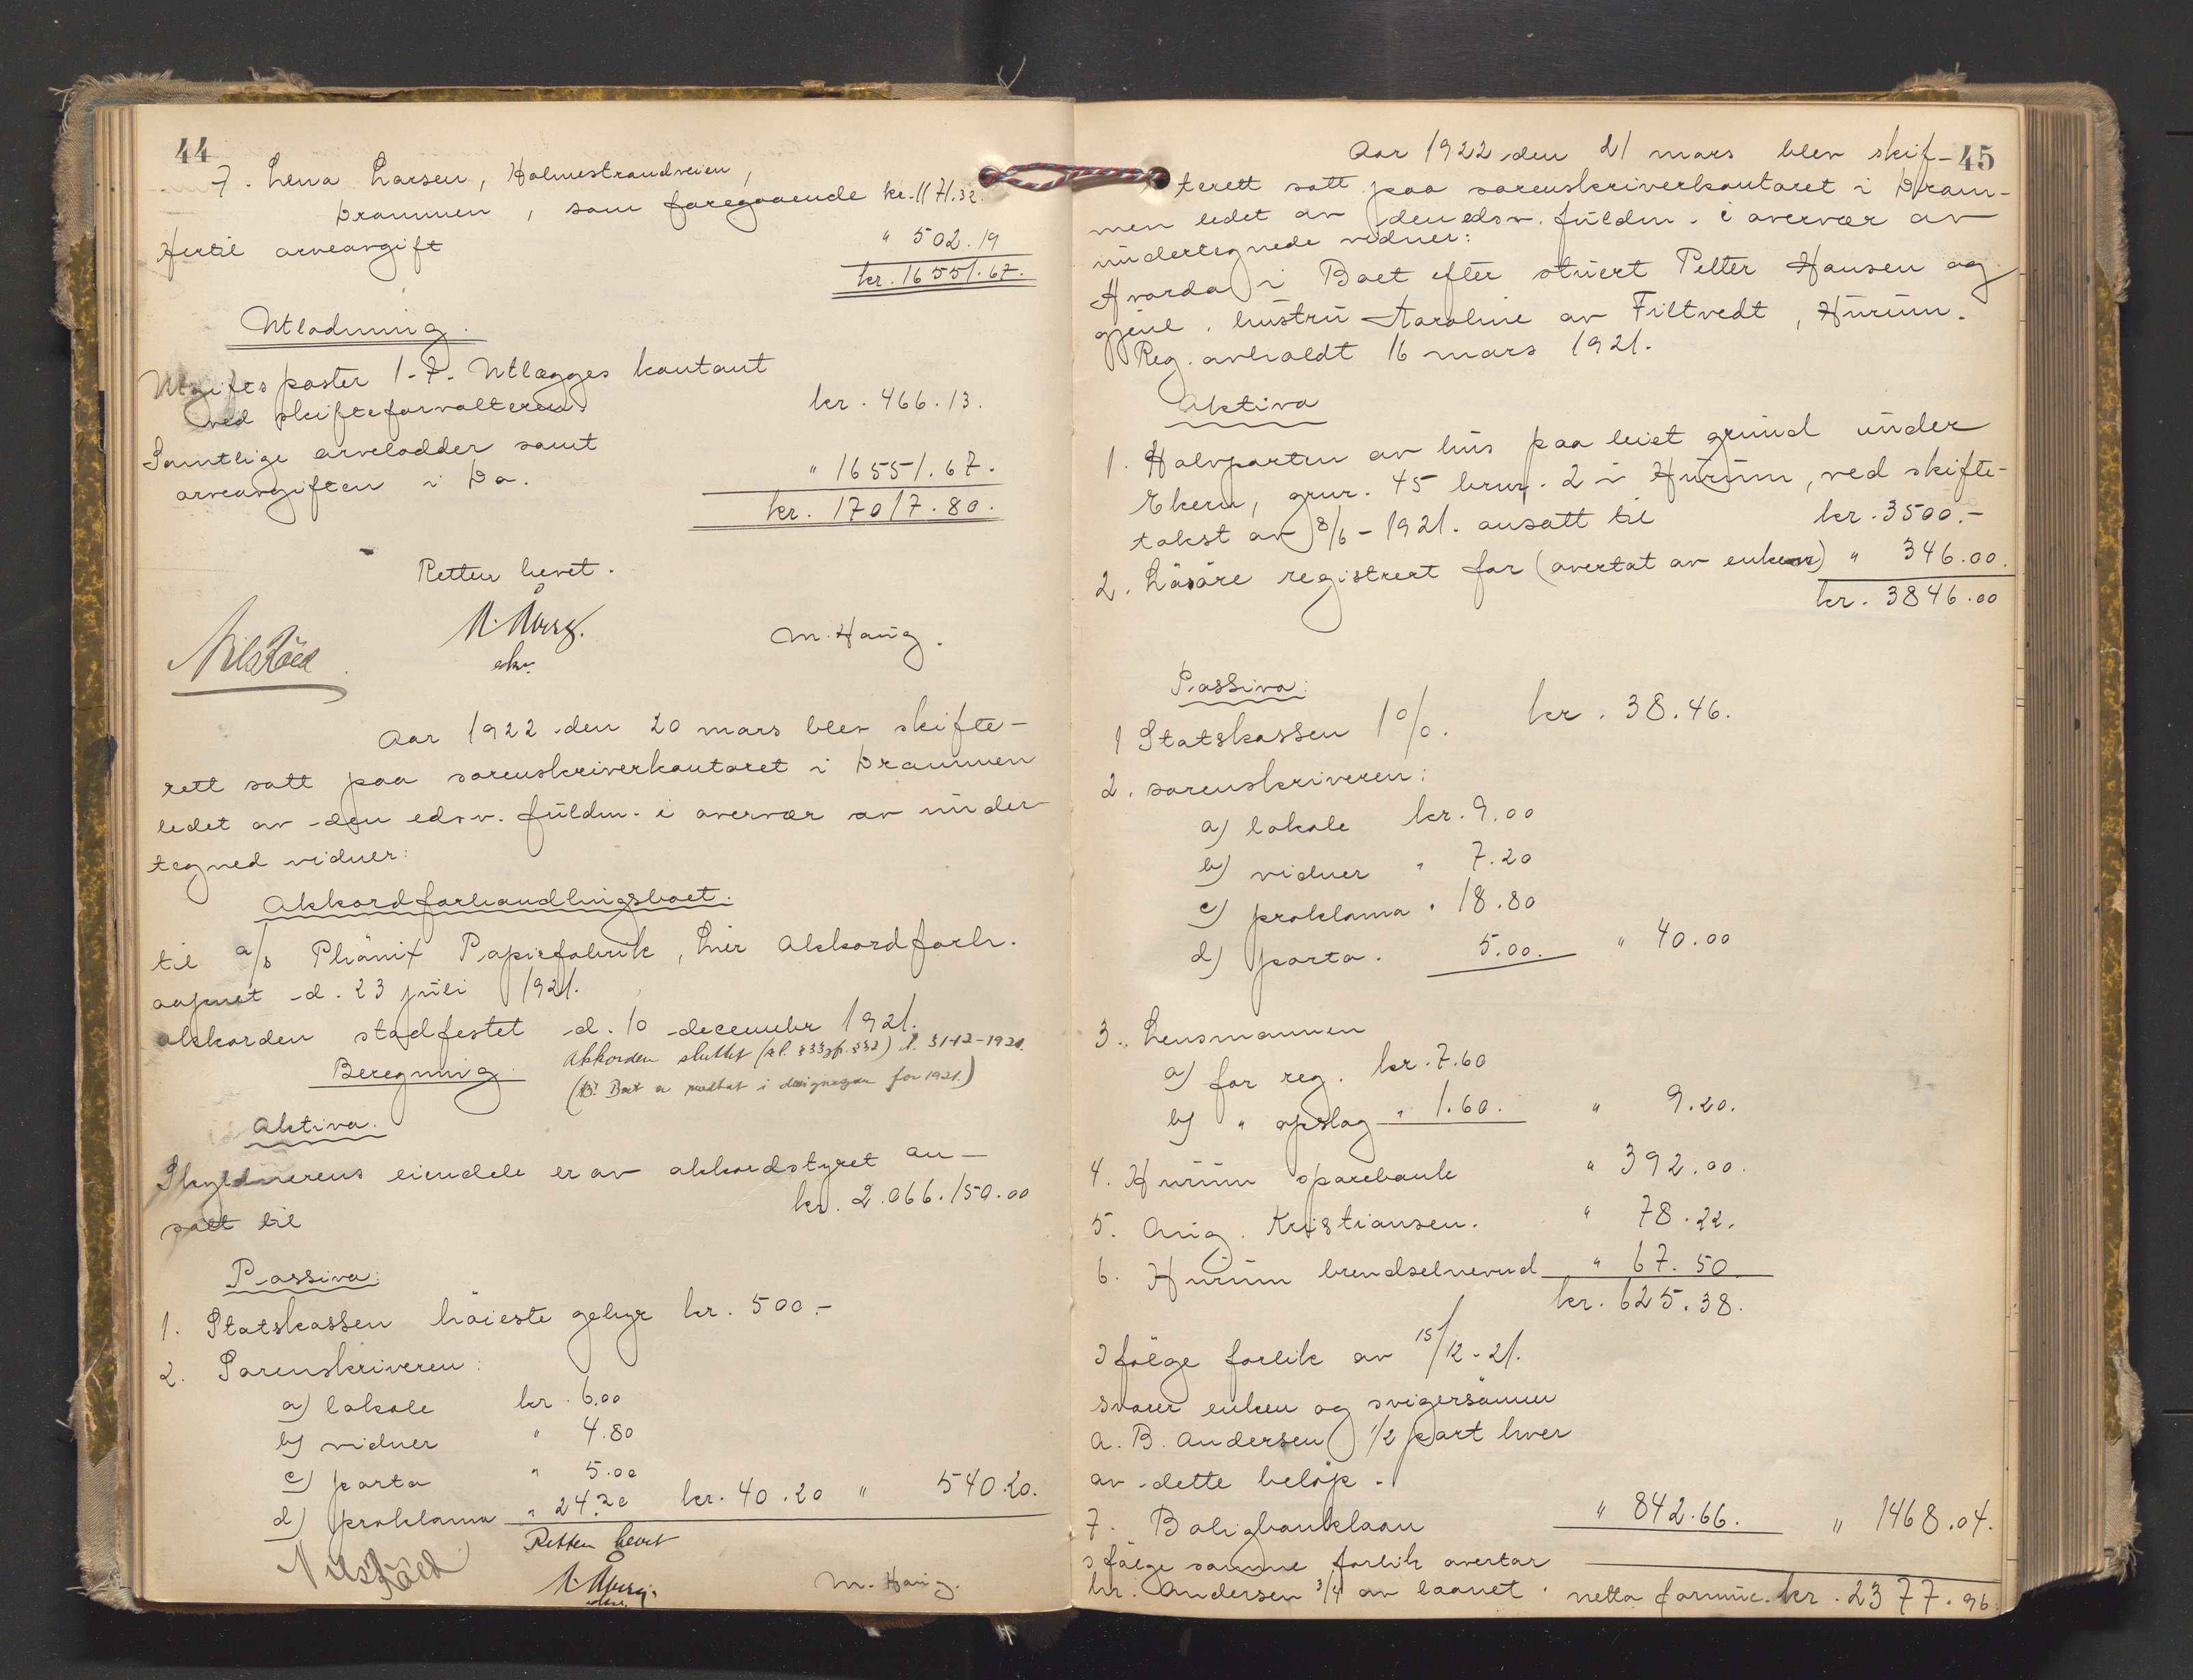 44
7. Lena Larsen, Holmestrandveien,
Drammen, som foregaaende kr. 1171.32
Hertil arveavgift " 502.19
kr. 16551.67.
Utlodning.
Utgiftsposter 1-7. Utlægges kontant
ved skifteforvalteren kr. 466.13.
Samtlige arvelodder samt
arveavgiften i Do. " 16551.67.
kr. 17017.80.
Retten hevet.
Nils Röed
M. Haug.
Aar 1922 den 20 mars blev skifte-
rett satt paa sorenskriverkontoret i Drammen
ledet av den edsv. fuldm. i overvær av under
tegned vidner:
Akkordforhandlingsboet.
til a/s Phönix Papirfabrik, Lier Akkordforh.
aapnet d. 23 juli 1921.
akkorden stadfestet d. 10 decembr 1921.
Akkorden sluttet (kl. §33 jfr. §32) d. 31-12-1921.
Beregning.
Aktiva.
Skyldnerens eiendele er av akkordstyret an-
satt til kr. 2.066.150.00
Passiva:
1. Statskassen höieste gebyr kr. 500.-
2. Sorenskriveren:
a) lokale kr. 6.00
b) vidner " 4.80
c) porto " 5.00
d) proklama " 24.20 kr. 40.20 " 540.20.
Retten hevet
Nils Röed
M. Haug.
45
Aar 1922 den 21 mars blev skif-
terett satt paa sorenskriverkontoret i Dram-
men ledet av den edsv. fuldm. i overvær av
undertegnede vidner:
Hvorda i Boet efter stuert Petter Hansen og
gjenl. hustru Karoline av Filtvedt, Hurum.
Reg. avholdt 16 mars 1921.
Aktiva
1. Halvparten av hus paa leiet grund under
Ekern, gnr. 45 brnr. 2 i Hurum, ved skifte-
takst av 8/6-1921. ansatt til kr. 3500.-
2. Lösöre registrert for (overtat av enken) " 346.00.
kr. 3846.00
Passiva:
1 Statskassen 1%. kr. 38.46.
2. sorenskriveren:
a) lokale kr. 9.00
b) vidner " 7.20
c) proklama " 18.80
d) porto. 5.00. " 40.00
3. Lensmannen
a) for reg. kr. 7.60
b) " opslag " 1.60. " 9.20.
4. Hurum sparebank " 392.00.
5. Aug. Kristiansen. " 78.22.
6. Hurum brendselnevnd " 67.50.
kr. 625.38.
Ifölge forlik av 15/12-21.
svarer enken og svigersönnen
A. B. Andersen 1/2 part hver
av dette belöp.
7. Boligbanklaan " 842.66. " 1468.04.
Ifölge samme forlik overtar
hr. Andersen 3/4 av laanet. netto formue. kr. 2377.96